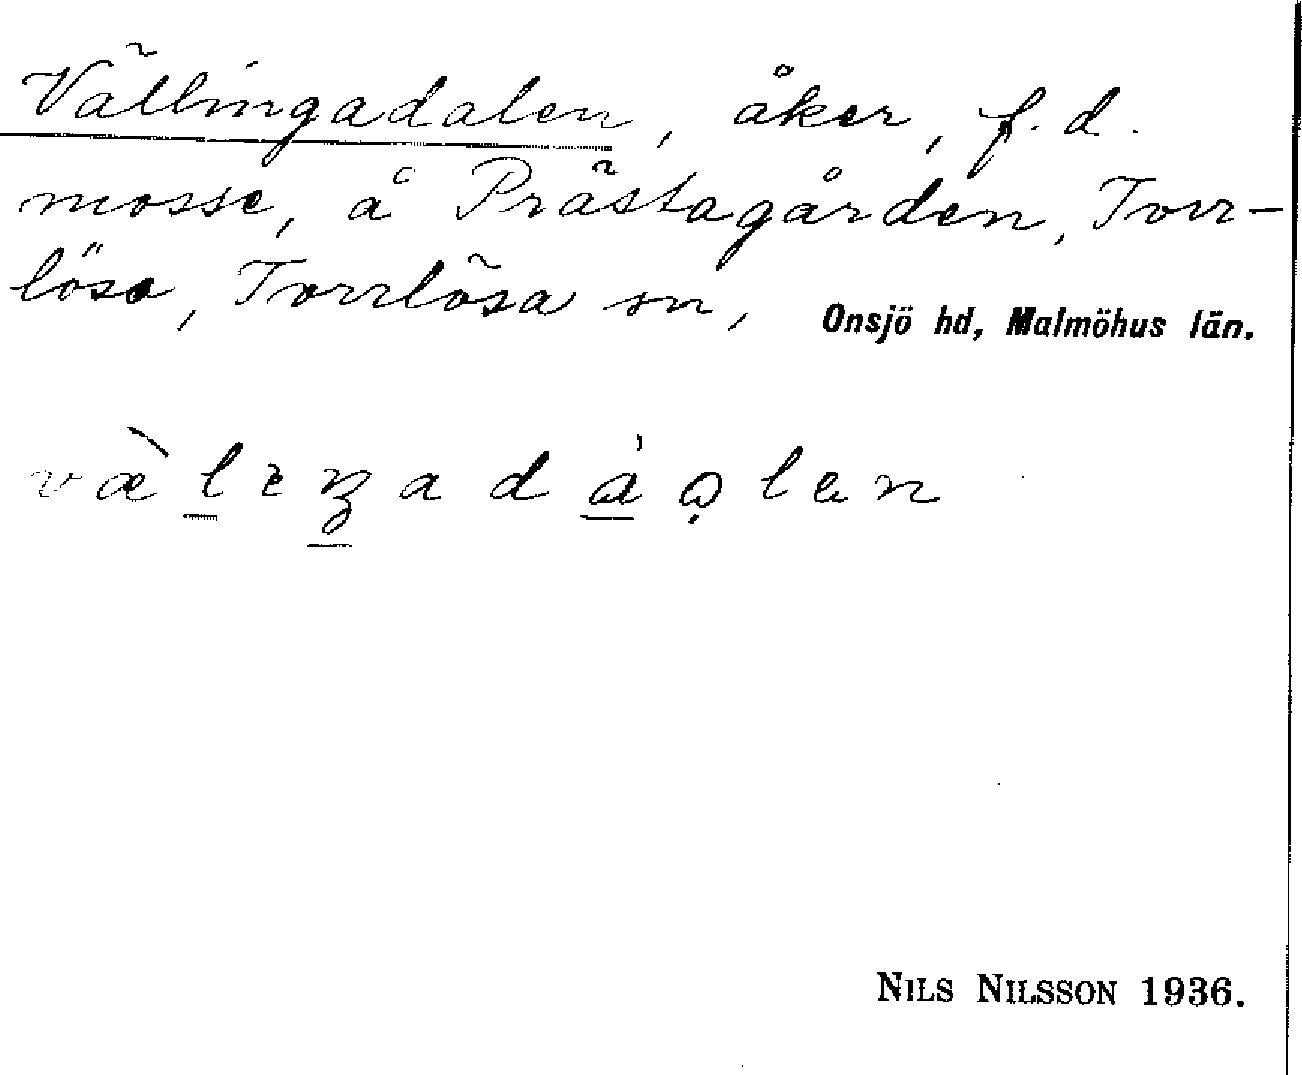 Vällingadalen, åker, f.d.
mosse, å Prästagården, Torr-
lösa, Torrlösa sn, Onsjö hd, Malmöhus län.
NILS NILSSON 1936.